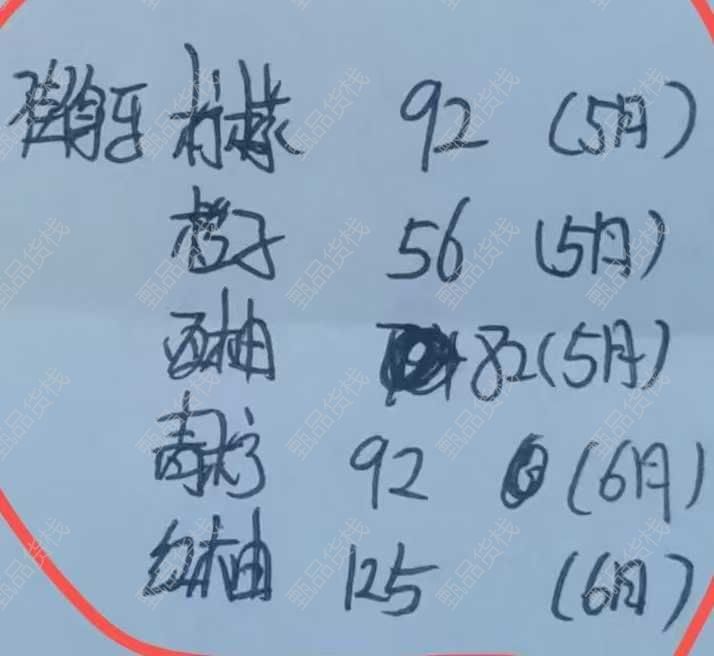 牙 柠檬 92 (5月)
橙子 56 (5月)
西柚 82 (5月)
青柠 92 (6月)
红柚 125 (6月)
甄品货栈